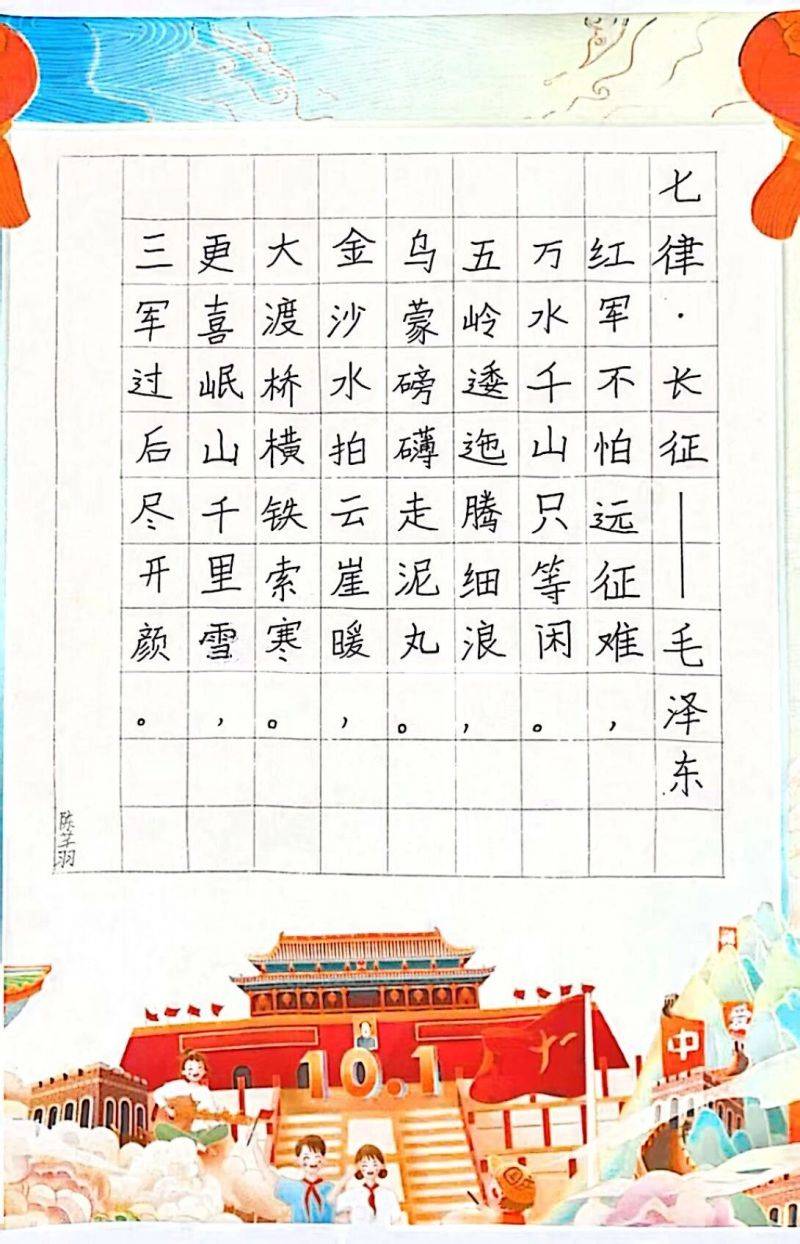 七律·长征——毛泽东
红军不怕远征难，
万水千山只等闲。
五岭逶迤腾细浪，
乌蒙磅礴走泥丸。
金沙水拍云崖暖，
大渡桥横铁索寒。
更喜岷山千里雪，
三军过后尽开颜。
陈芊羽
10.1
中
爱